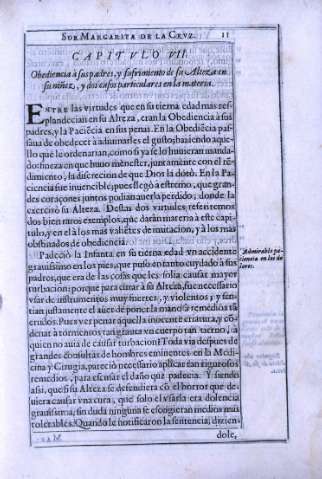 SOR MARGARITA DE LA CRVZ. 11
CAPITVLO VII
Obediencia à sus padres, y sufrimiento de su Alteza en
su niñez, y dos casos particulares en la materia.
ENTRE las virtudes que en su tierna edad mas res-
plandecian en su Alteza, eran la Obediẽcia à sus
padres, y la Paciẽcia en sus penas. En la Obediẽcia pas-
saua de obedecer à adiuinarles el gusto; haziendo aque-
llo què le ordenarian, como si ya se lo huuieran manda-
do: fineza en que huuo menester, juntamente con el rẽ-
dimiento, la discrecion de que Dios la dotò. En la Pa-
ciencia fue inuencible, pues llegò à estremo, que gran-
des coraçones juntos podian auerla perdido, donde la
exercitò su Alteza. Destas dos virtudes referiremos
dos bien raros exemplos, que daràn materia à este capi-
tulo, y en el à los mas valiẽtes de imitacion, y à los mas
obstinados de obediencia.
Padeciò la Infanta en su tierna edad vn accidente
grauissimo en los pies, que puso en tanto cuydado à sus
padres, que era de las cosas que les solia causar mayor
turbacion: porque para curar à su Alteza, fue necessario
vsar de instrumentos muy fuertes, y violentos; y sen-
tian justamente el auer de poner la mano à remedios tã
crudos. Pues ver penar aquella inocente criatura, y cõ-
denar à tormentos tan graues vn cuerpo tan tierno, à
quien no auia de causar turbacion? Toda via despues de
grandes consultas de hombres eminentes en la Medi-
cina y Cirugia, pareciò necessario aplicar tan rigurosos
remedios, para escusar el daño que padecia. Y siendo
assi, que si su Alteza se defendiera cõ el horror que de-
uiera causar vna cura, que solo el vsarla era dolencia
grauissima, sin duda ninguna se escogieran medios mas
tolerables: Quando le notificaron la sentencia, dizien-
dole,
Admirable pa-
ciencia en los do-
lores.